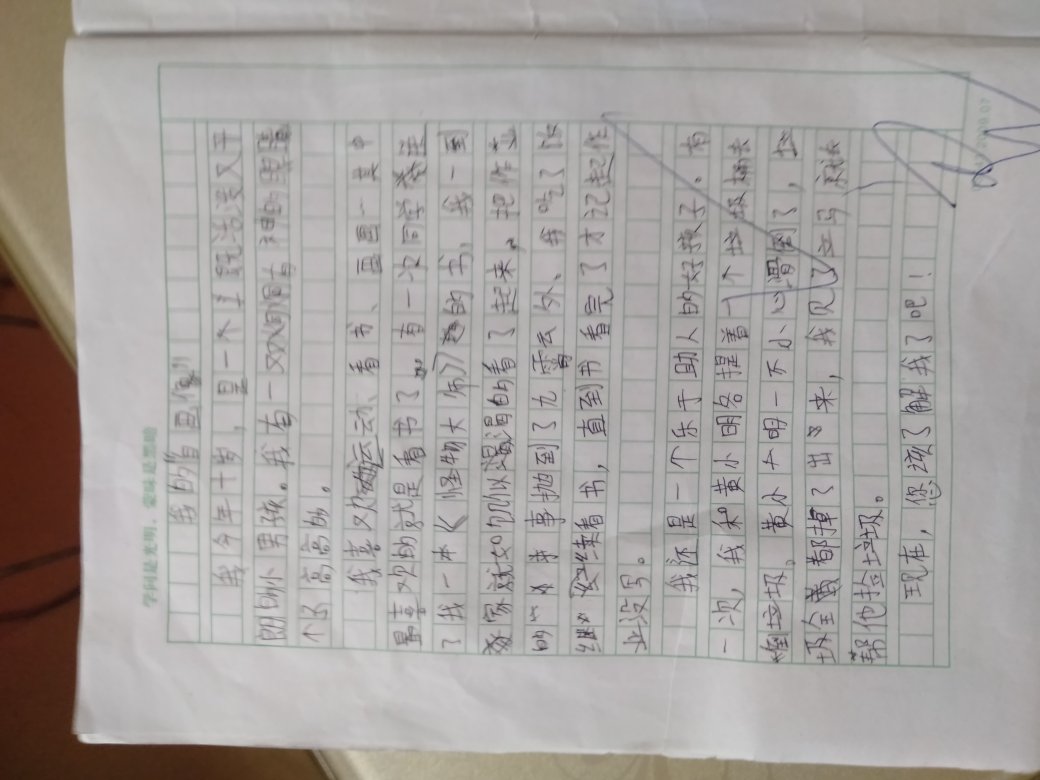 学问是光明，蒙昧是黑暗
我的"自画像"
我今年十岁，是一个既活泼又开
朗的小男孩。我有一双炯炯有神的眼睛
个子高高的。
我喜欢运动、看书、画画，其中
最喜欢的就是看书了。有一次同学送
了我一本《怪物大师》的书，我一到
家就如饥似渴的看了起来，把作业
的事抛到了九霄云外、我吃了饭
继续看书，直到书看完了才记起作
业没写。
我还是一个乐于助人的好孩子。有
一次，我和黄小明各提着一个垃圾桶去
垃圾，黄小明一不小心滑倒了，垃
圾全都掉了出来，我见了立马就去
帮他捡垃圾。
现在，您该了解我了吧！